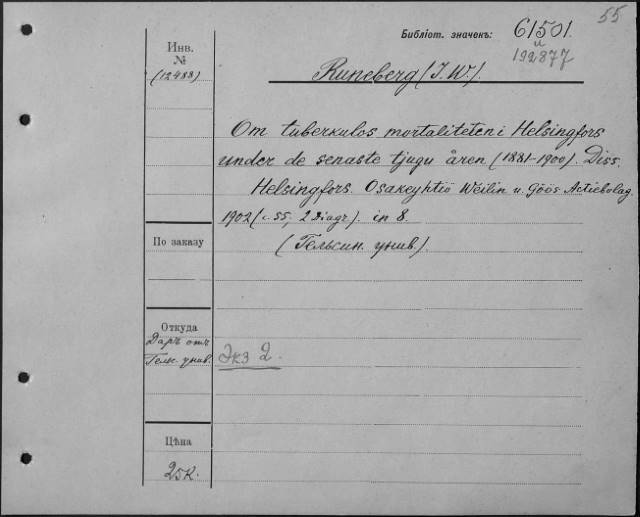 55
Библіот. значекъ: 61501
и
192877
Инв.
№
(12488)
Runeberg (J. W.).
Om tuberkulos mortaliteten i Helsingfors
under de senaste tjugu åren (1881-1900). Diss.
Helsingfors. Osakeyhtiö Weilin u. Göös Actiebolag.
1902 (с. 55, 2 Diagr). in 8.
По заказу
(Гельсин. унив.).
Откуда
Даръ отъ
Гельс. унив.
Экз 2.
Цѣна
25к.